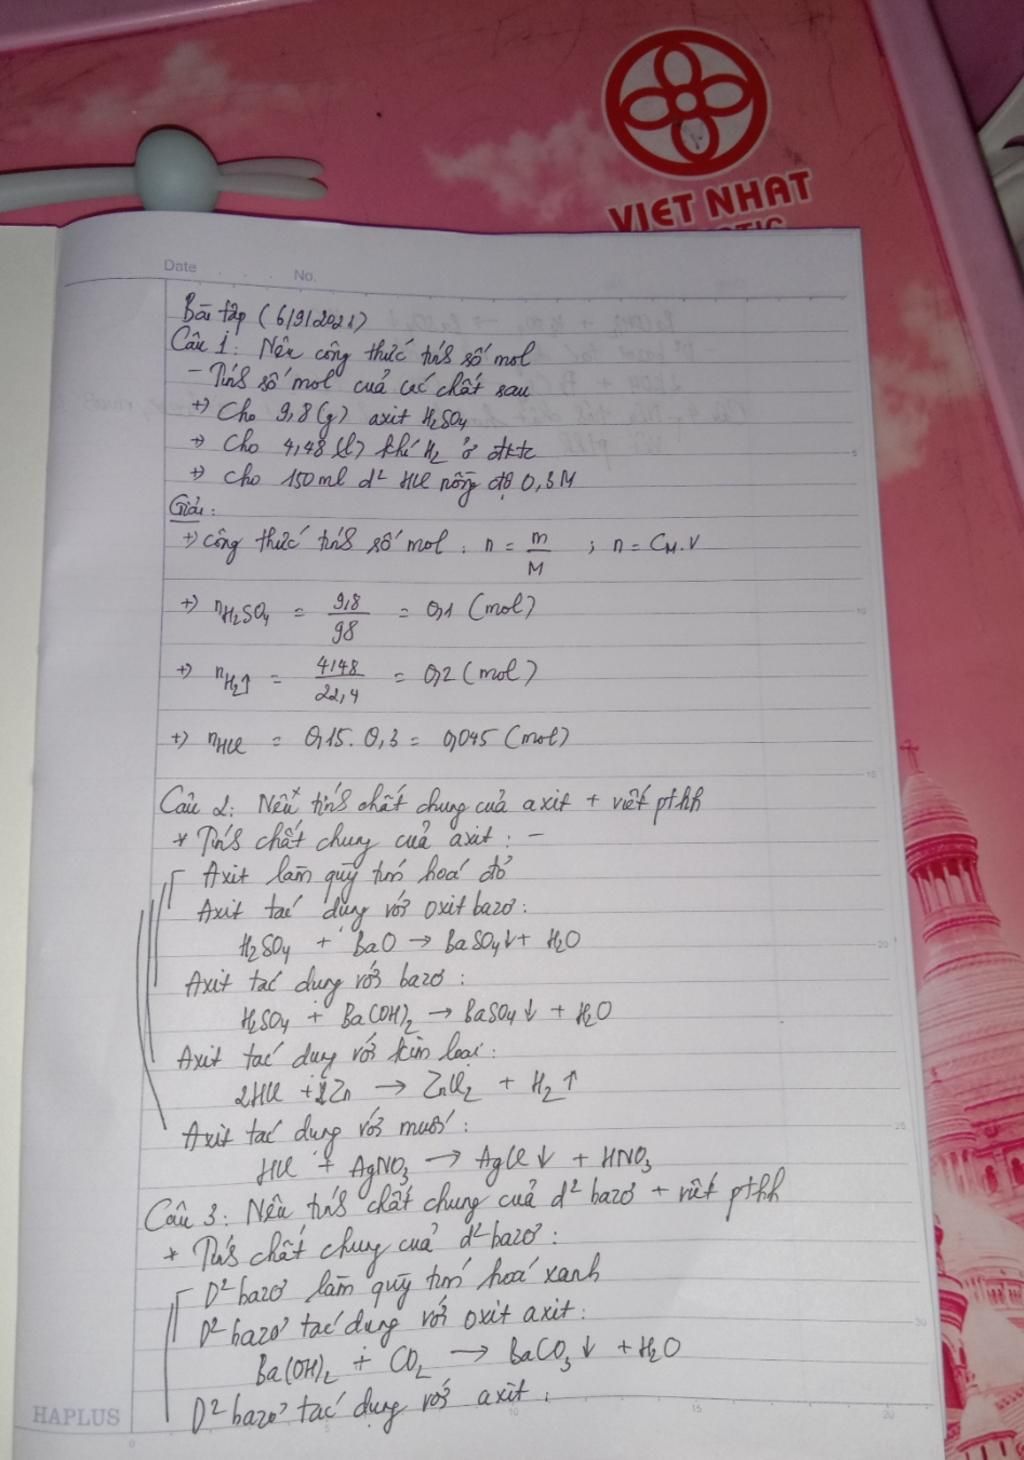 VIET NHAT
Date No.
Bài tập (6/9/2021)
Câu 1: Nêu công thức tính số mol
- Tính số mol của các chất sau
+) Cho 9,8(g) axit H₂SO₄
+) Cho 4,48(l) khí H₂ ở đktc
+) Cho 150ml d² HCl nồng độ 0,3M
Giải:
+) Công thức tính số mol: n = m/M ; n = CM.V
+) nH₂SO₄ = 9,8/98 = 0,1 (mol)
+) nH₂↑ = 4,48/22,4 = 0,2 (mol)
+) nHCl = 0,15. 0,3 = 0,045 (mol)
Câu 2: Nêu tính chất chung của axit + viết pthh
* Tính chất chung của axit: -
Axit làm quỳ tím hoá đỏ
Axit tác dụng với oxit bazơ:
H₂SO₄ + BaO → BaSO₄↓ + H₂O
Axit tác dụng với bazơ:
H₂SO₄ + Ba(OH)₂ → BaSO₄↓ + H₂O
Axit tác dụng với kim loại:
2HCl + Zn → ZnCl₂ + H₂↑
Axit tác dụng với muối:
HCl + AgNO₃ → AgCl↓ + HNO₃
Câu 3: Nêu tính chất chung của d² bazơ + viết pthh
* Tính chất chung của d² bazơ:
D² bazơ làm quỳ tím hoá xanh
D² bazơ tác dụng với oxit axit:
Ba(OH)₂ + CO₂ → BaCO₃↓ + H₂O
D² bazơ tác dụng với axit:
HAPLUS